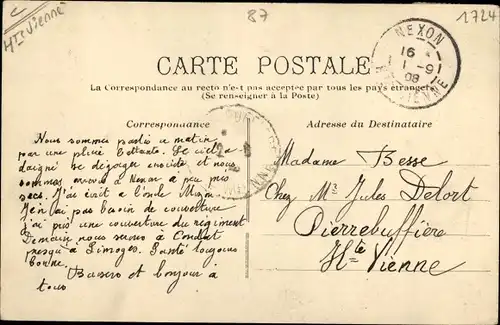 Hte Vienne
87
1724
NEXON
16
1 - 9
08
VIENNE
CARTE POSTALE
La Correspondance au recto n'est pas acceptée par tous les pays étrangers
(Se renseigner à la Poste)
Correspondance
Adresse du Destinataire
Nous sommes partis ce matin
par une pluie battante. Le ciel a
daigné se dégorger ensuite et nous
sommes arrivés à Nexon à peu près
secs. J'ai écrit à l'oncle
Je n'ai pas besoin de couverture
j'ai pris une couverture du régiment
Demain nous serons à Condat
presqu'à Limoges. Santé toujours
bonne.
Baisers et bonjour à
tous
Madame Besse
Chez Mr Jules Delort
Pierrebuffière
Hte Vienne